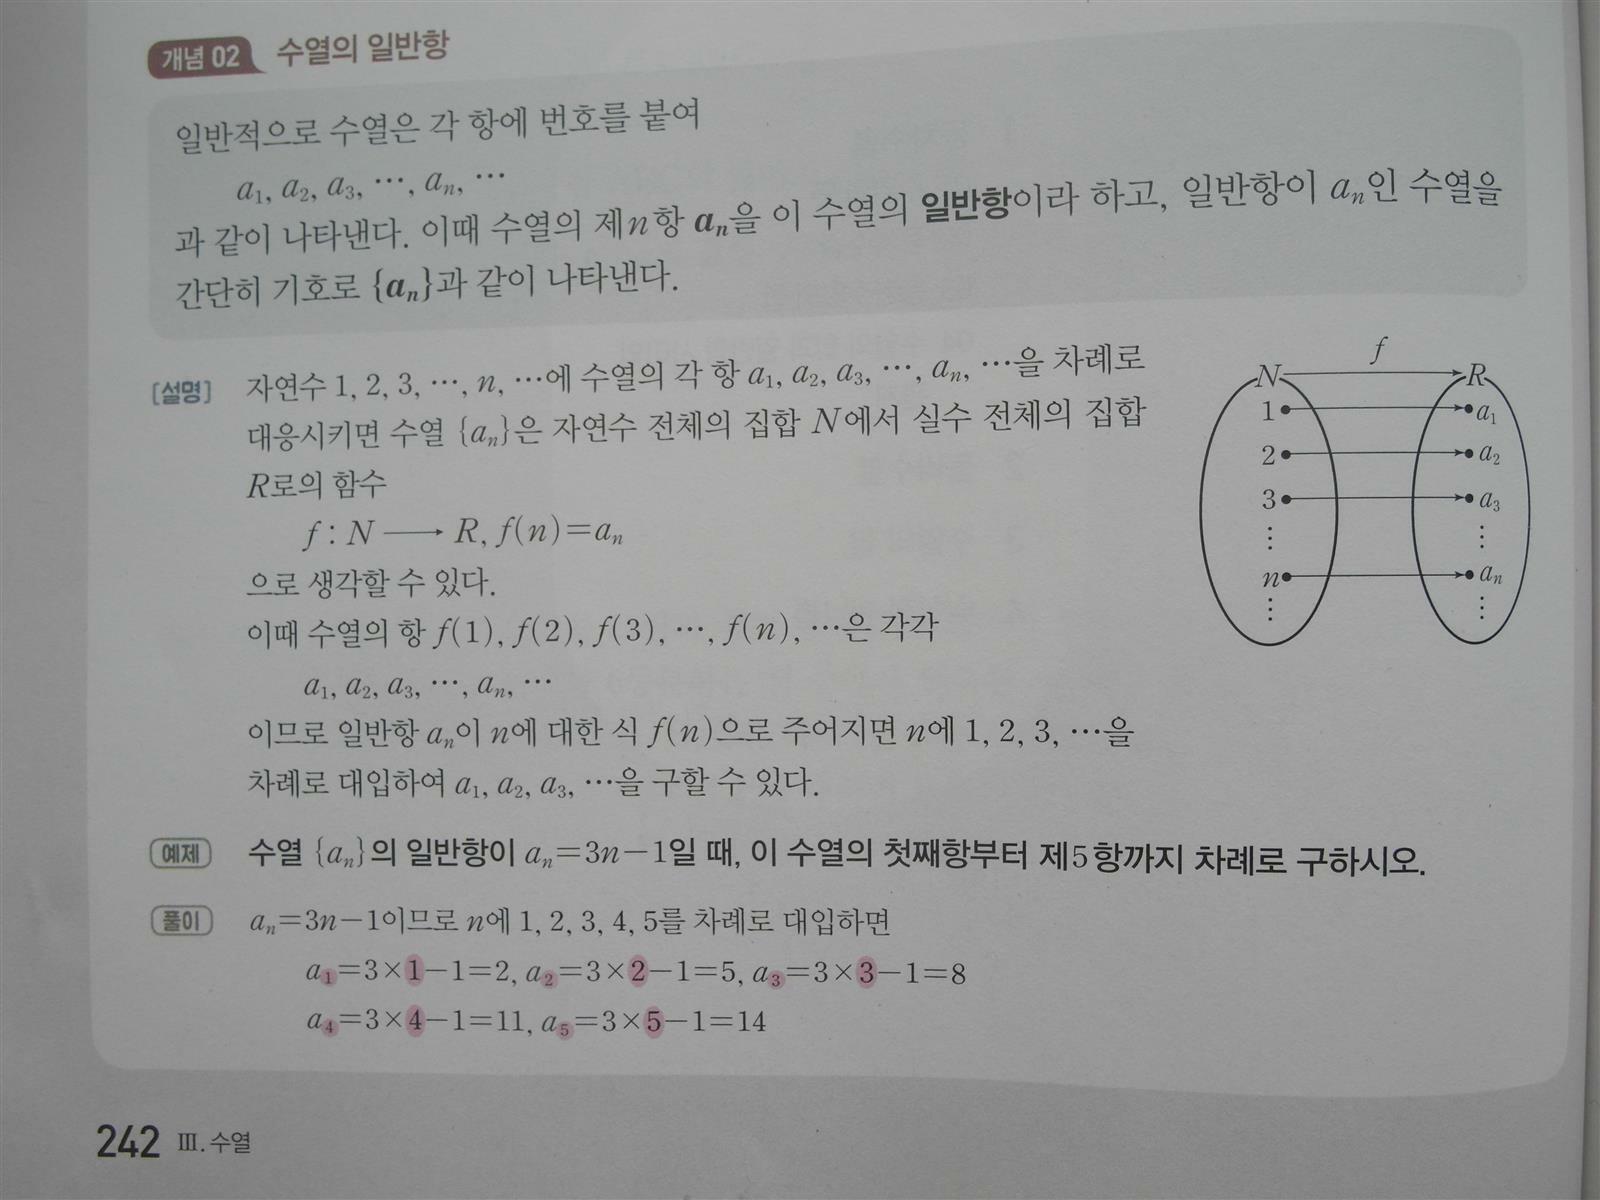 개념 02 수열의 일반항
일반적으로 수열은 각 항에 번호를 붙여
a₁, a₂, a₃, ⋯, aₙ, ⋯
과 같이 나타낸다. 이때 수열의 제n항 aₙ을 이 수열의 일반항이라 하고, 일반항이 aₙ인 수열을
간단히 기호로 {aₙ}과 같이 나타낸다.
[설명] 자연수 1, 2, 3, ⋯, n, ⋯에 수열의 각 항 a₁, a₂, a₃, ⋯, aₙ, ⋯을 차례로
대응시키면 수열 {aₙ}은 자연수 전체의 집합 N에서 실수 전체의 집합
R로의 함수
f : N ⟶ R, f(n)=aₙ
으로 생각할 수 있다.
이때 수열의 항 f(1), f(2), f(3), ⋯, f(n), ⋯은 각각
a₁, a₂, a₃, ⋯, aₙ, ⋯
이므로 일반항 aₙ이 n에 대한 식 f(n)으로 주어지면 n에 1, 2, 3, ⋯을
차례로 대입하여 a₁, a₂, a₃, ⋯을 구할 수 있다.
f
N R
1 a₁
2 a₂
3 a₃
⋮ ⋮
n aₙ
⋮ ⋮
예제 수열 {aₙ}의 일반항이 aₙ=3n-1일 때, 이 수열의 첫째항부터 제5항까지 차례로 구하시오.
풀이 aₙ=3n-1이므로 n에 1, 2, 3, 4, 5를 차례로 대입하면
a₁=3×1-1=2, a₂=3×2-1=5, a₃=3×3-1=8
a₄=3×4-1=11, a₅=3×5-1=14
242 Ⅲ. 수열